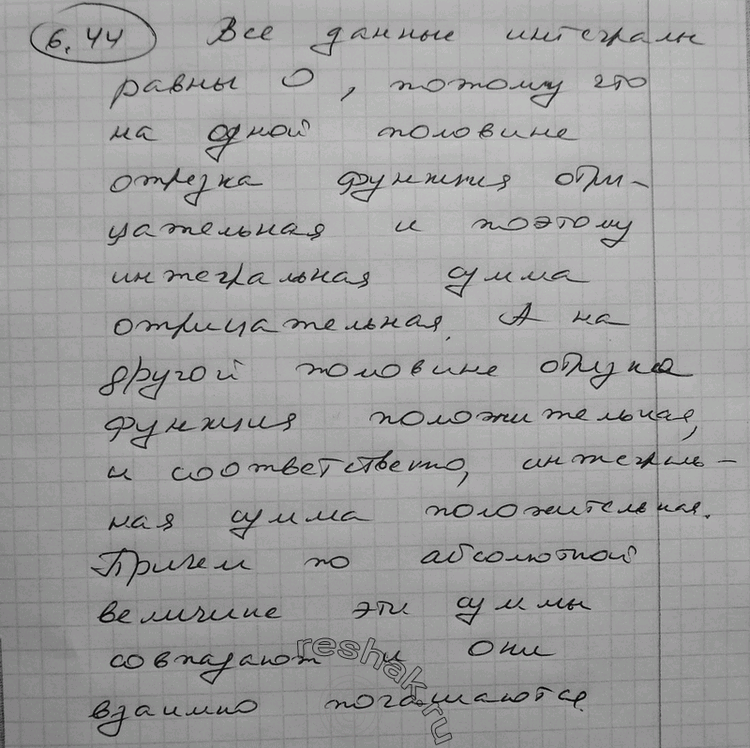 6.44 Все данные интегралы
равны 0, потому что
на одной половине
отрезка функция отри-
цательная и поэтому
интегральная сумма
отрицательная. А на
другой половине отрезка
функция положительная,
и соответственно, интеграль-
ная сумма положительная.
Причем по абсолютной
величине эти суммы
совпадают и они
взаимно погашаются.
reshak.ru